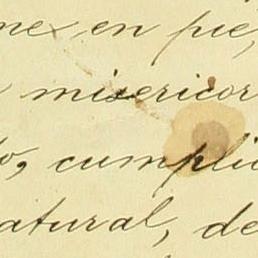 me, en pie,
misericor
o, cumpli
atural, de